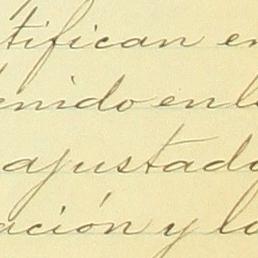 tifican en
enido en la
ajustado
ación y la